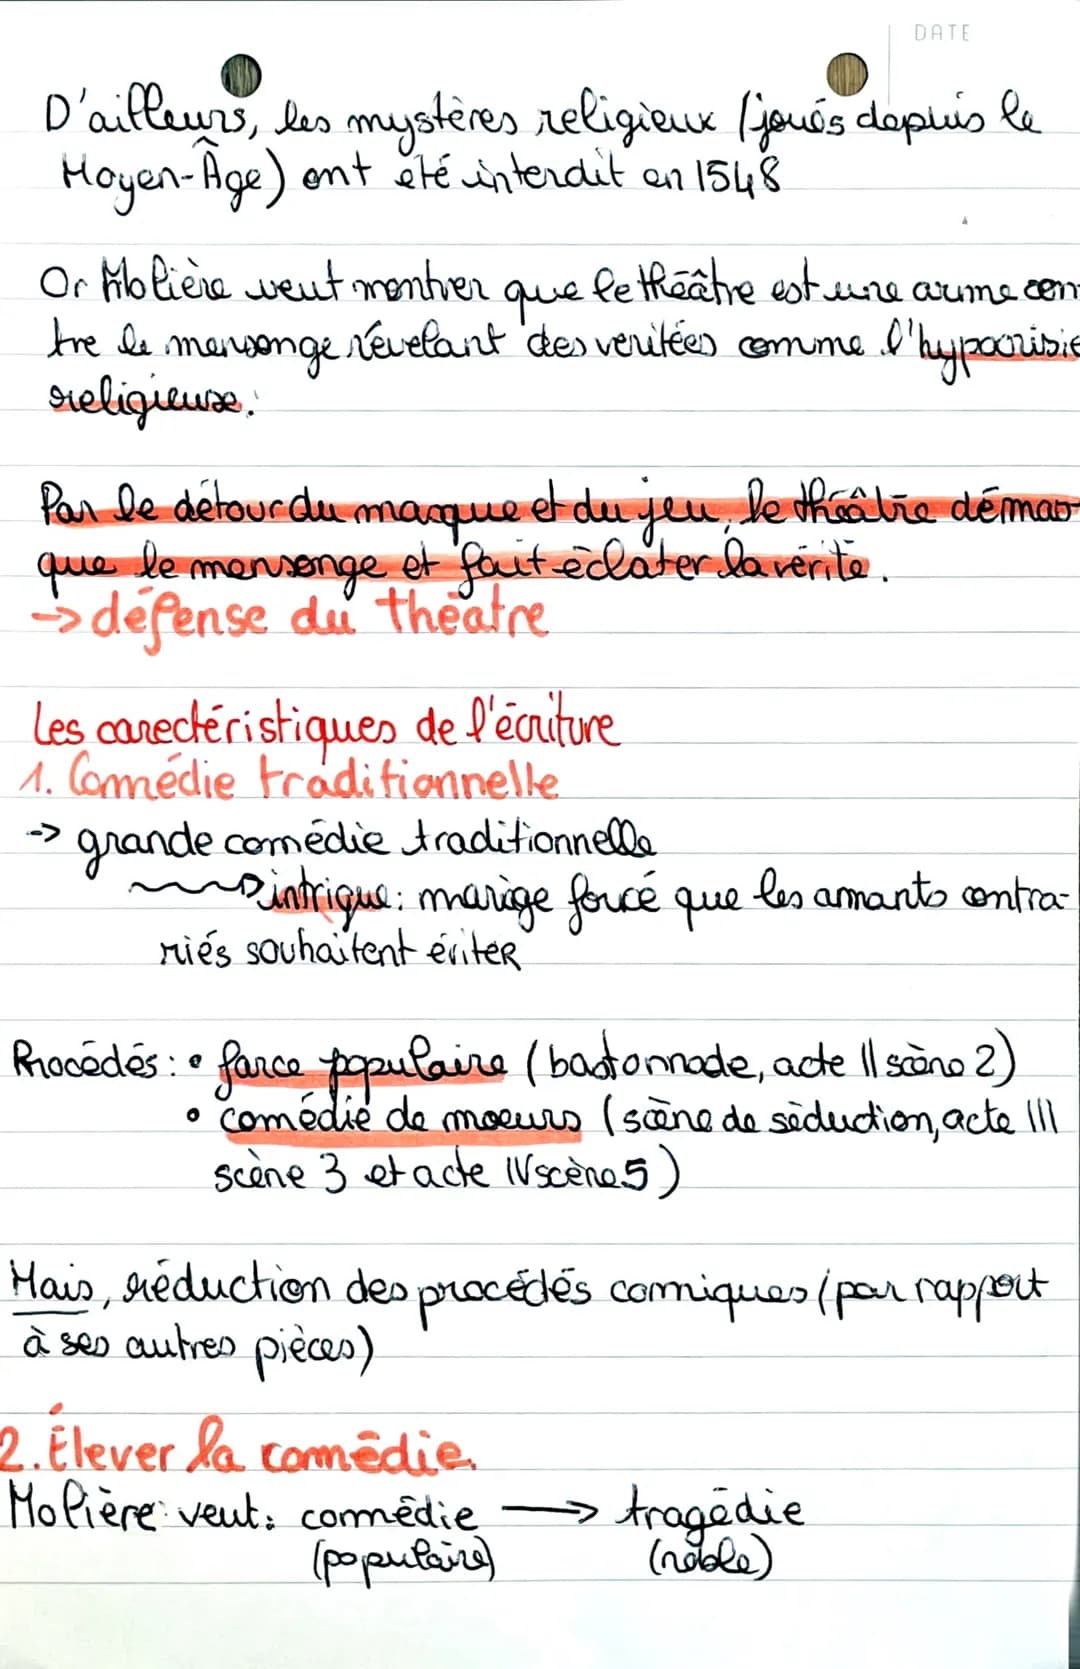 DATE
D'ailleurs, les mystères religieux (joués depuis le
Moyen-Âge) ont été interdit en 1548
Or Molière veut montrer que le théâtre est une arme con-
tre le mensonge révélant des veritées comme l'hypocrisie
religieuse.
Par le détour du masque et du jeu, le théâtre démas-
que le mensonge et fait éclater la vérité.
-> défense du théâtre
Les carectéristiques de l'écriture
1. Comédie traditionnelle
-> grande comédie traditionnelle
intrigue : mariage forcé que les amants contra-
riés souhaitent éviter
Procédés : • farce populaire (bastonnade, acte II scène 2)
• comédie de moeurs (scène de séduction, acte III
scène 3 et acte IV scène 5)
Mais, réduction des procédés comiques (par rapport
à ses autres pièces)
2. Élever la comédie.
Molière veut : comédie -> tragédie
(populaire) (noble)